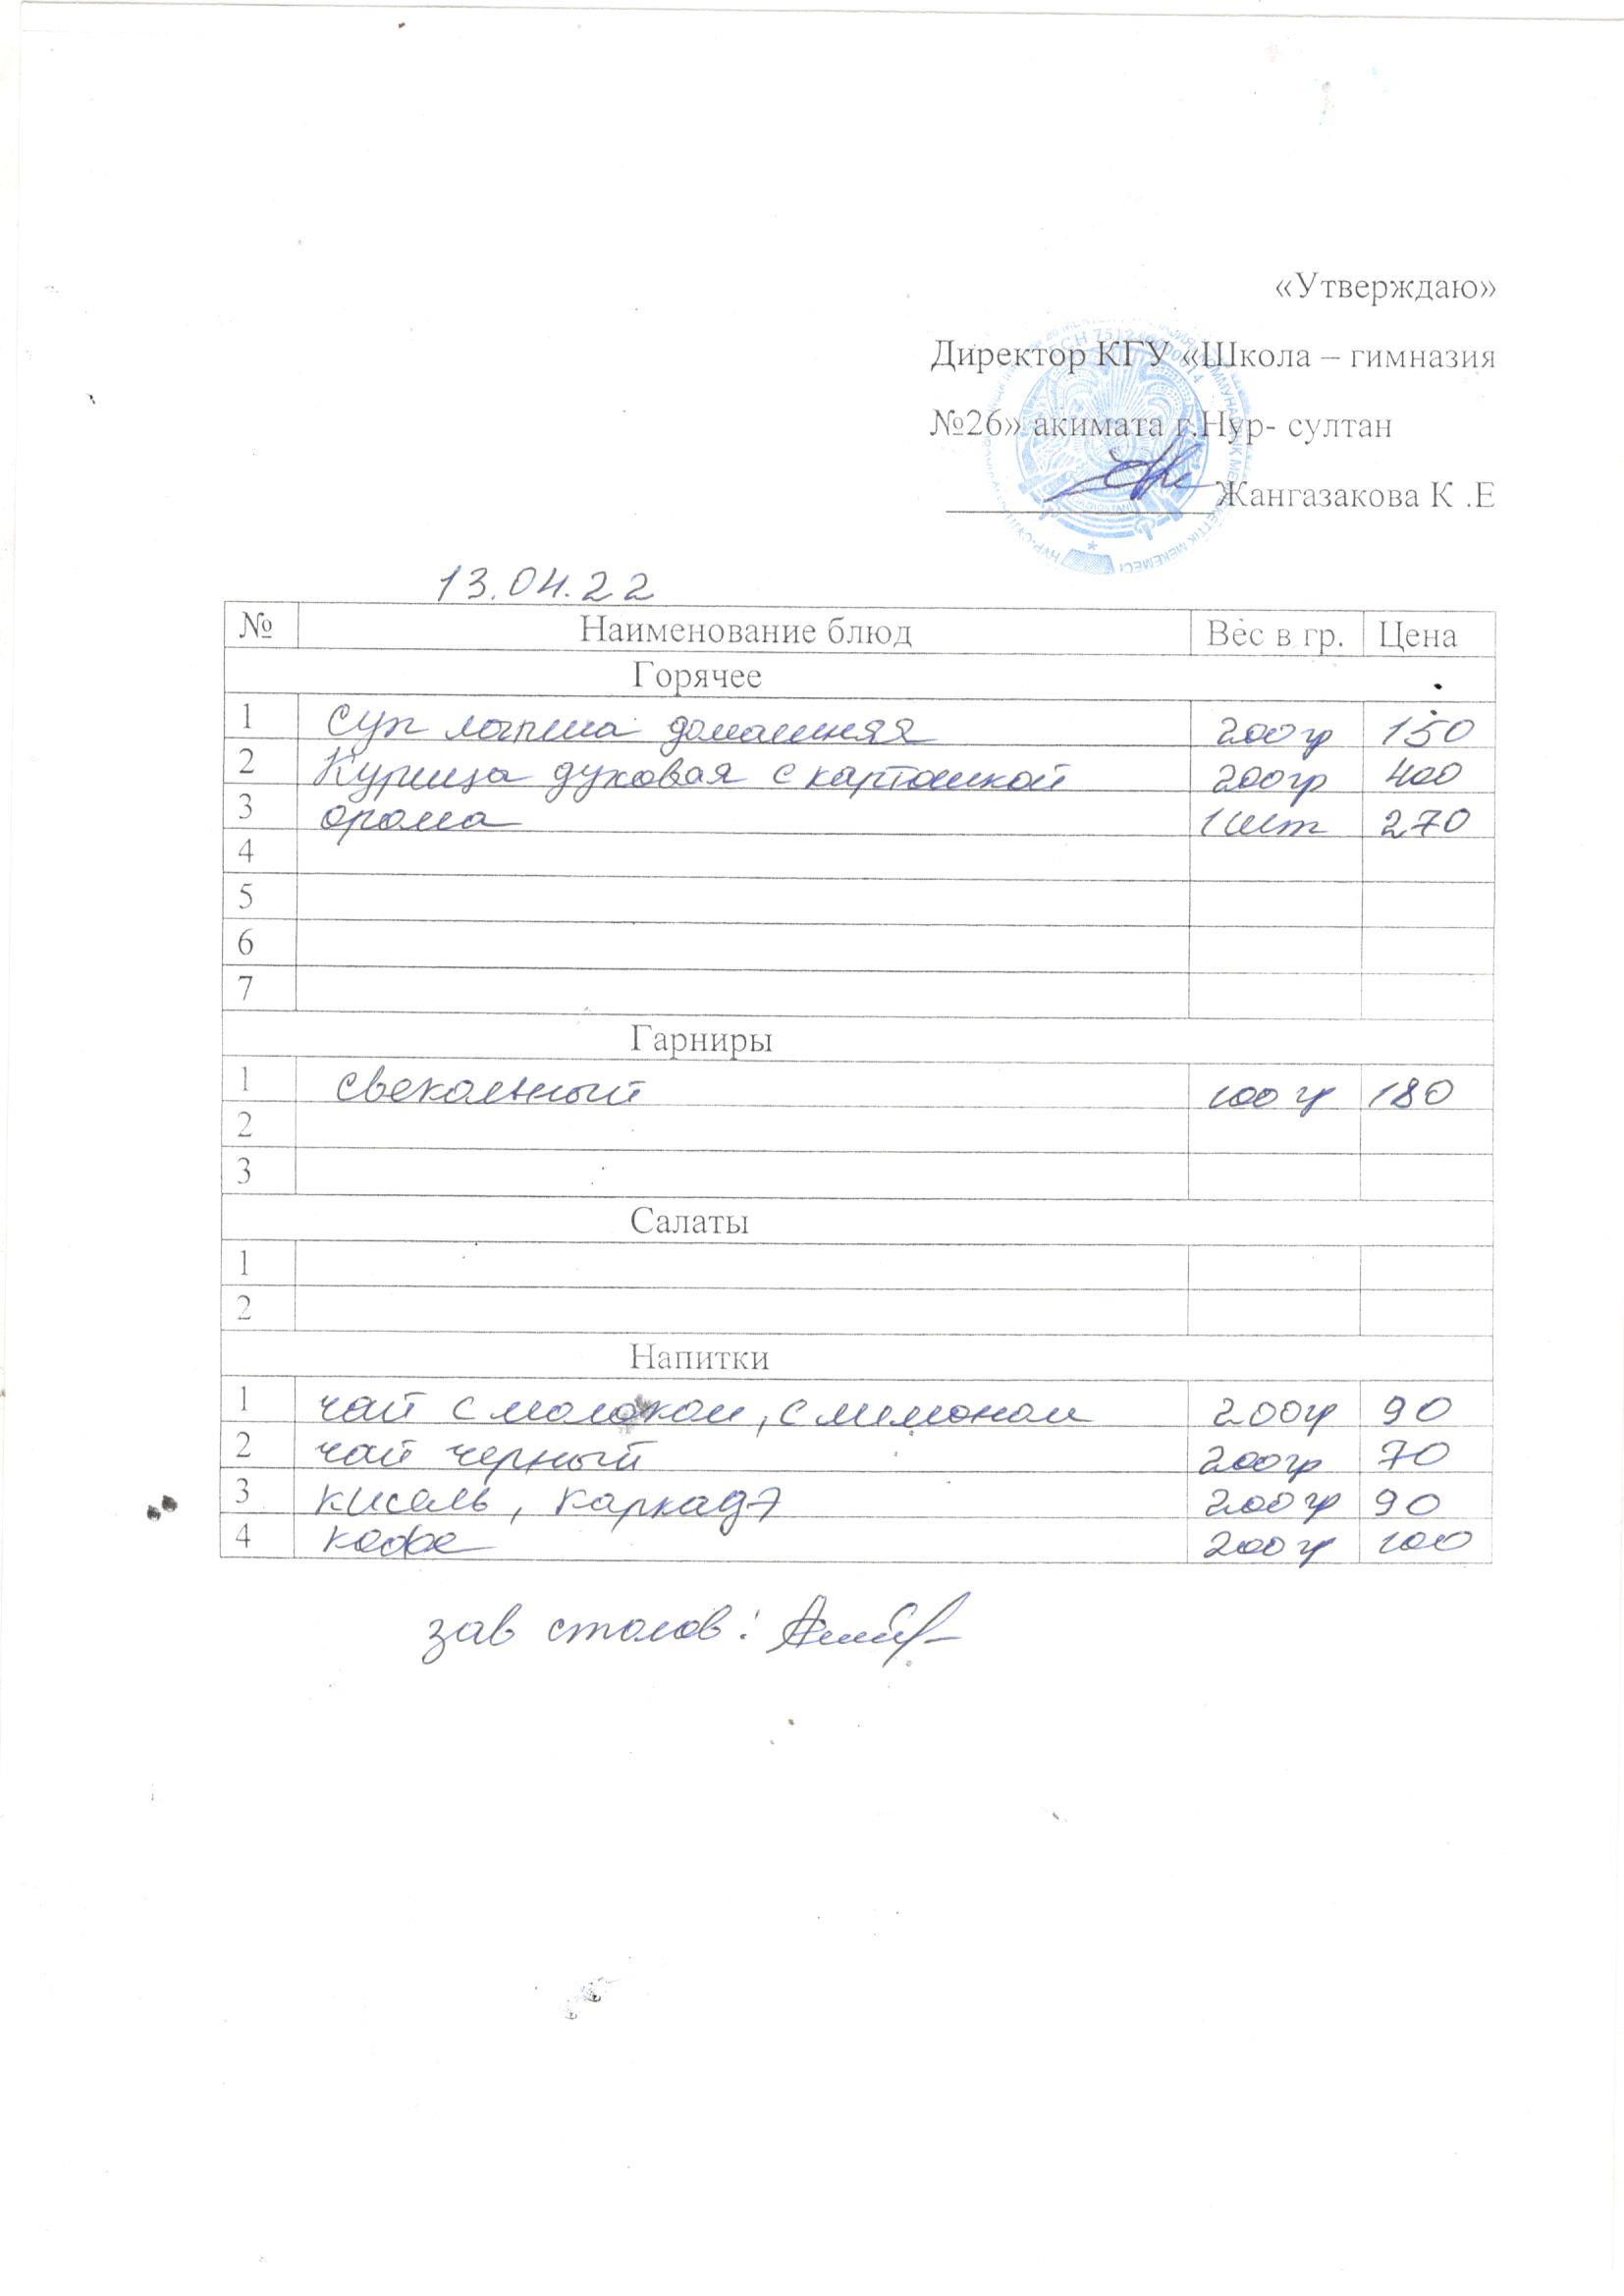 «Утверждаю»
Директор КГУ «Школа – гимназия
№26» акимата г.Нур- султан
Жангазакова К .Е
13.04.22
№ Наименование блюд Вес в гр. Цена
Горячее
1 Суп лапша домашняя 200гр 150
2 Курица духовая с картошкой 200гр 400
3 орома 1 шт 270
4
5
6
7
Гарниры
1 свекольный 100 гр 180
2
3
Салаты
1
2
Напитки
1 чай с молоком, с лимоном 200гр 90
2 чай черный 200гр 70
3 кисель, каркадэ 200гр 90
4 кофе 200гр 100
зав столов: